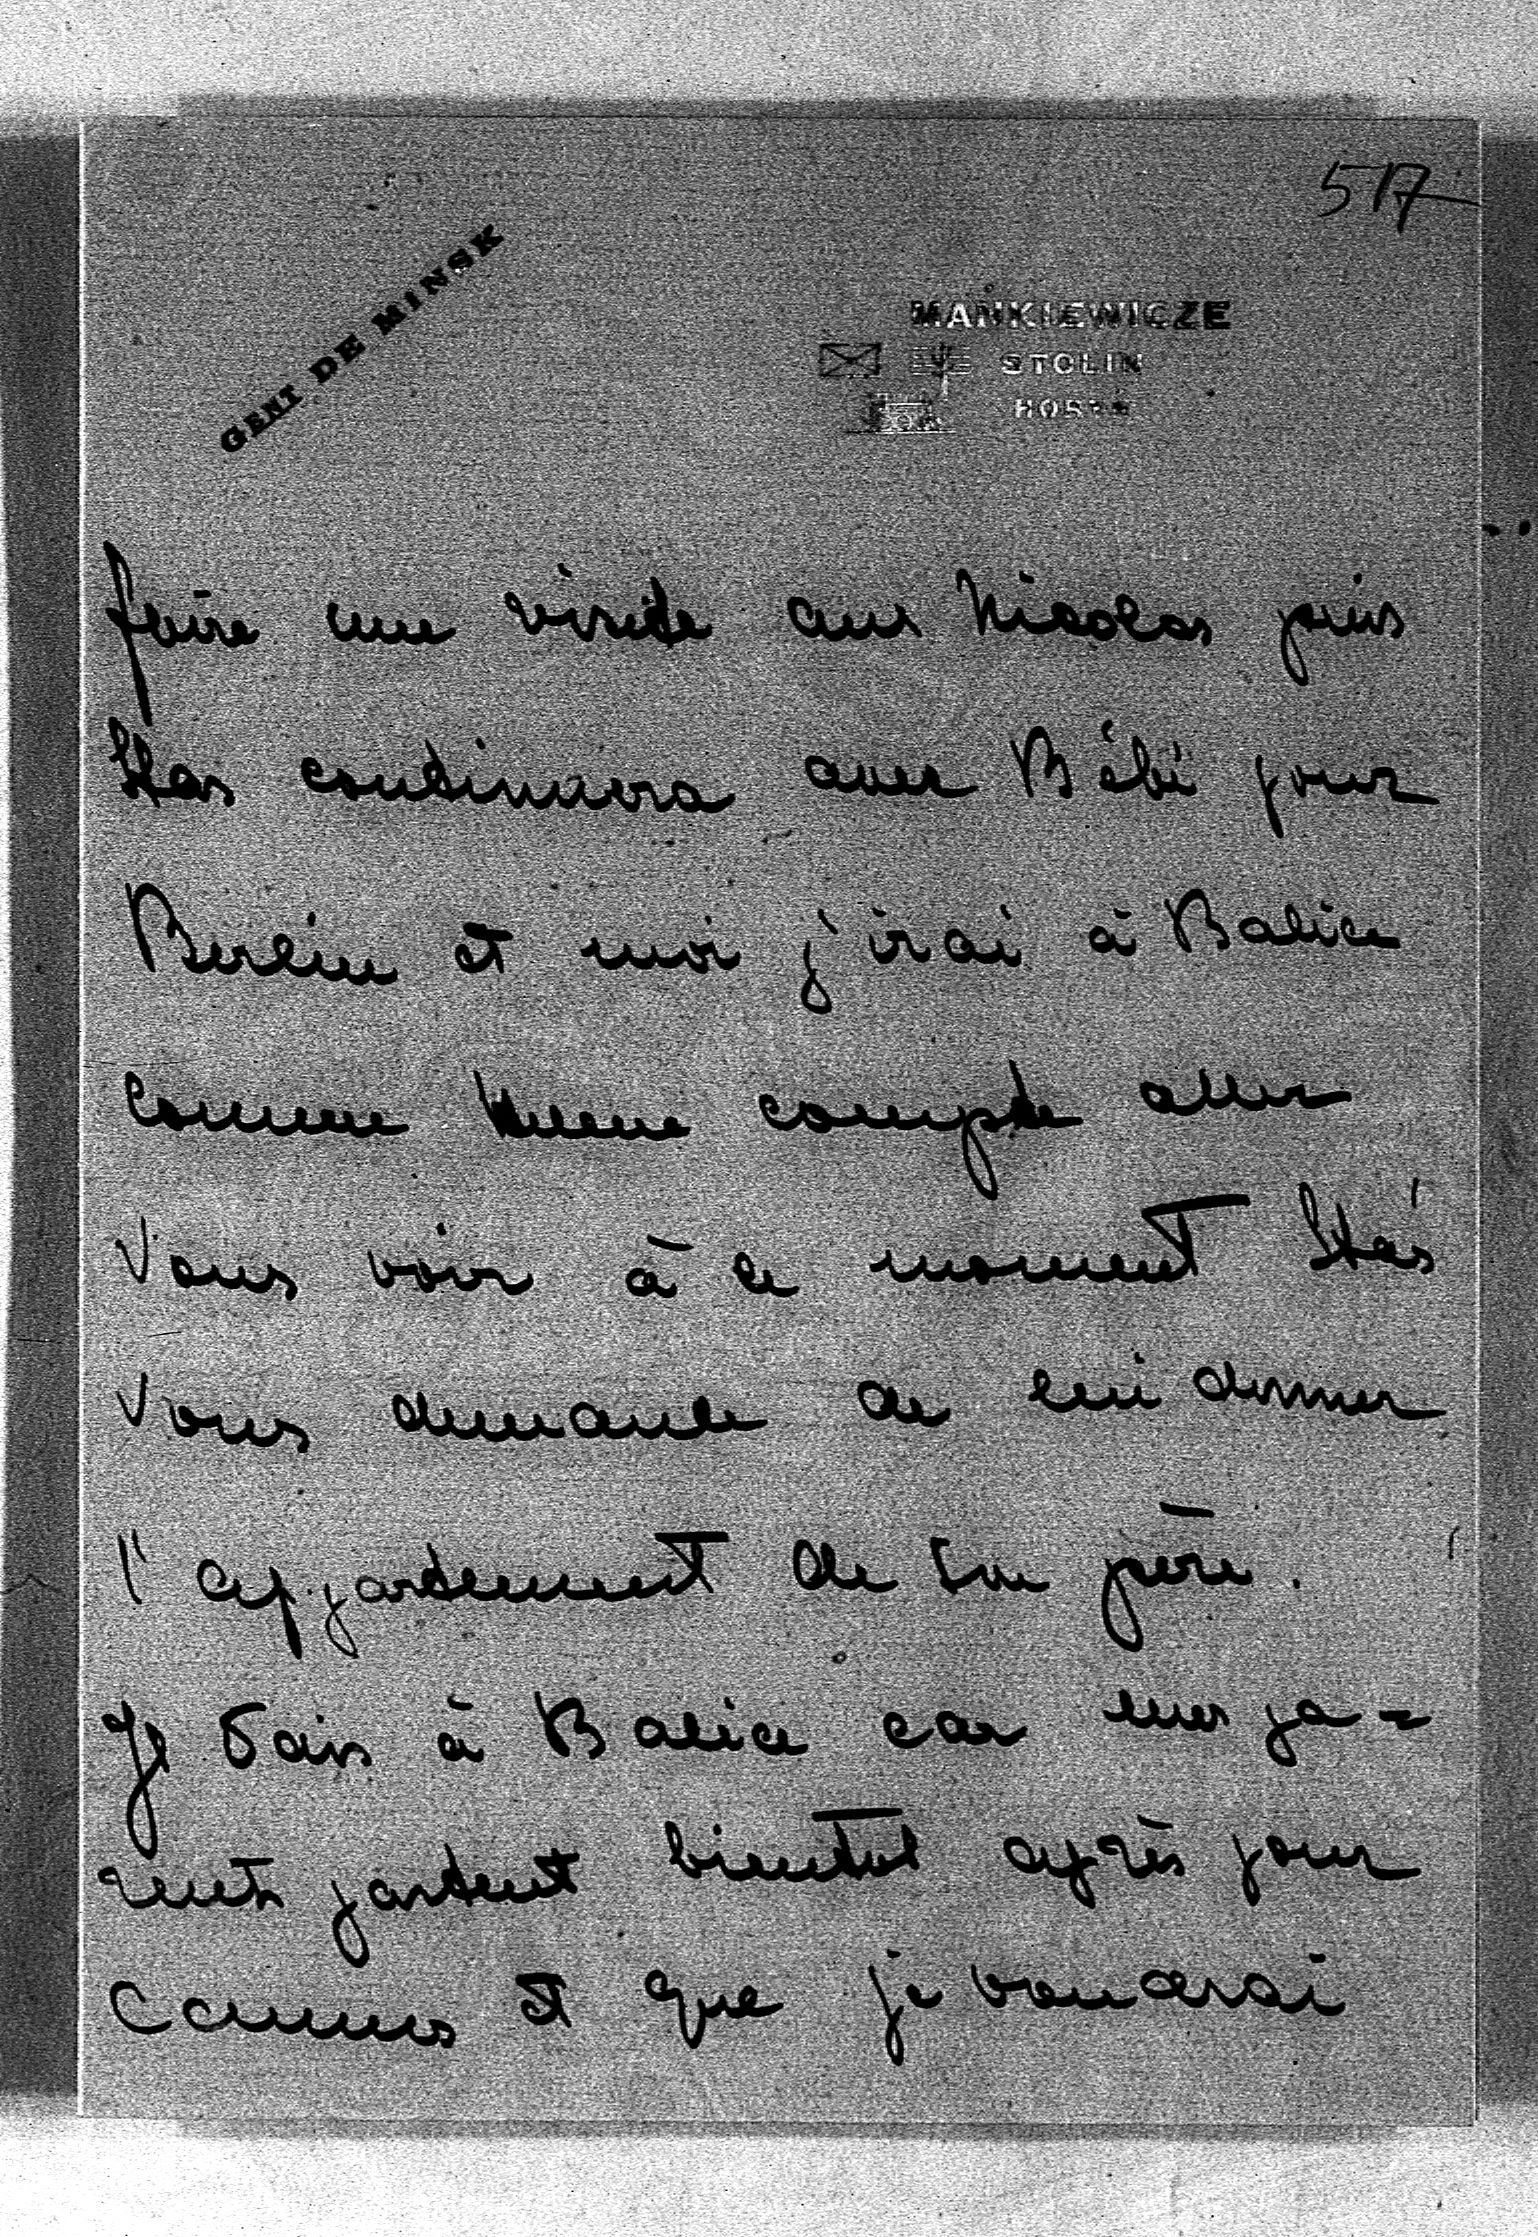 517
GENT DE MINSK
MAŃKIEWICZE
STOLIN
faire une visite aux Nicolas puis
Stas continuera avec Bébé pour
Berlin et moi j'irai à Balice
Comme compte aller
Vous voir à ce moment Staś
Vous demande de lui donner
l'appartement de son père.
Je vais à Balice car mes pa=
rents partent bientôt après pour
Cannes et que je voudrai